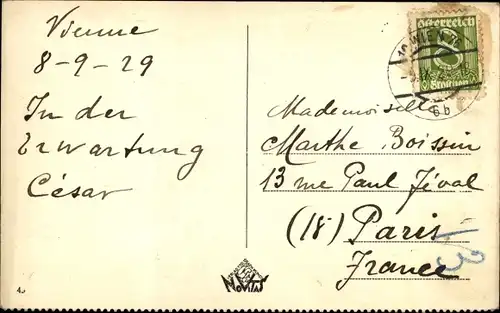 Vienne
8-9-29
In der
Erwartung
César
Österreich
8
Groschen
WIEN
6b
Mademoiselle
Marthe Boissin
13 rue Paul Féval
(18) Paris
France
3
NOVITAS